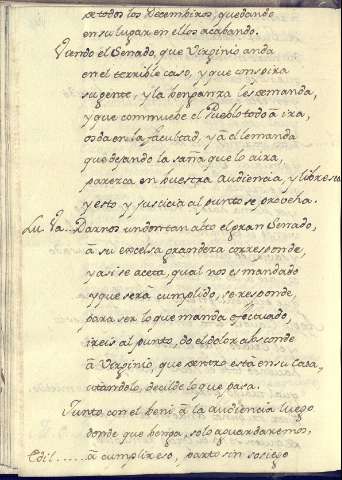 de todos los Decembiros, quedando
en su lugar en ellos acabando.
Viendo el Senado, que Virginio anda
en el terrible caso, y que conspira
su gente, y la benganza les demanda,
y que commuebe el Pueblo todo à ira,
osda en la facultad, y à el demanda
que dejando la saña que lo aira,
parezca en buestra Audiencia, y libre sea
y esto y justicia al punto se probeha.
Lu. Va.. Darnos un don tan alto el gran Senado,
à su excelsa grandeza corresponde,
y asi se aceta, qual nos es mandado
y que será cumplido, se responde,
para ser lo que manda efectuado,
ireis al punto, do el dolor absconde
à Virginio, que dentro está en su casa
citandolo, decilde lo que pasa.
Junto con el beni, à la audiencia luego
donde que benga, solo aguardaremos,
Edil..... à cumplir eso, parto sin sosiego